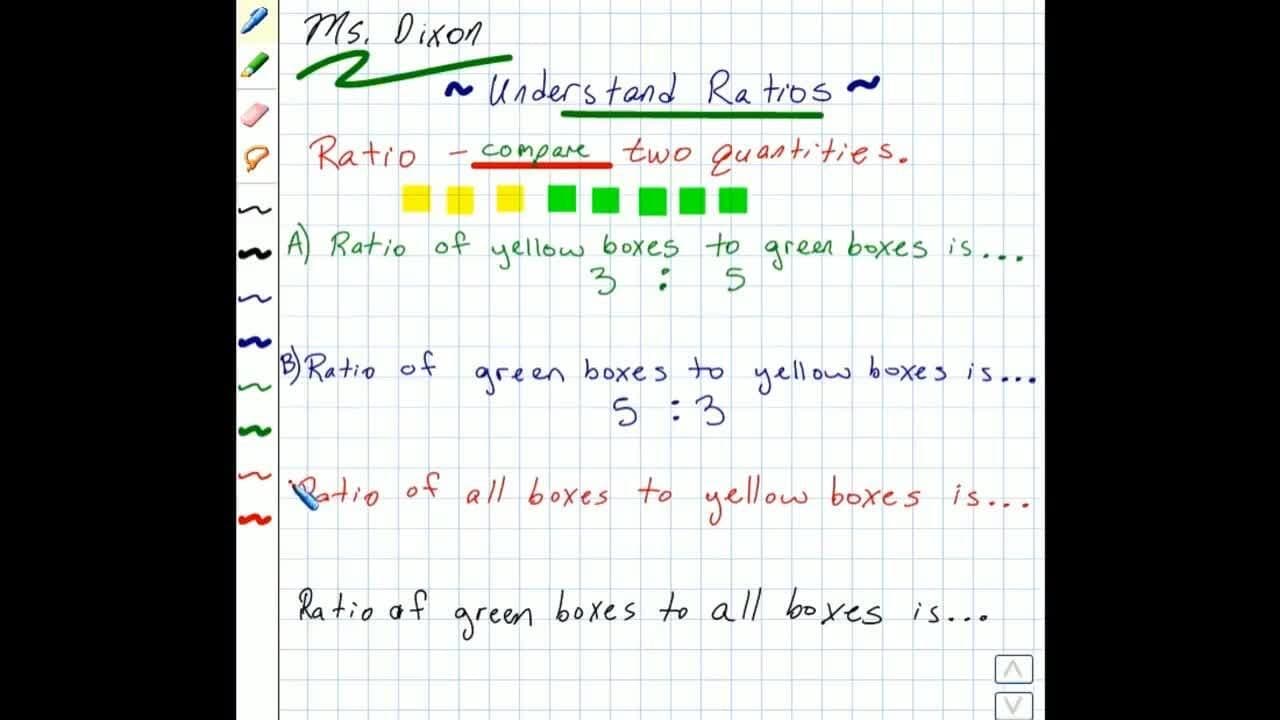 Ms. Dixon
~ Understand Ratios ~
Ratio - compare two quantities.
A) Ratio of yellow boxes to green boxes is...
3 : 5
B) Ratio of green boxes to yellow boxes is...
5 : 3
Ratio of all boxes to yellow boxes is...
Ratio of green boxes to all boxes is...